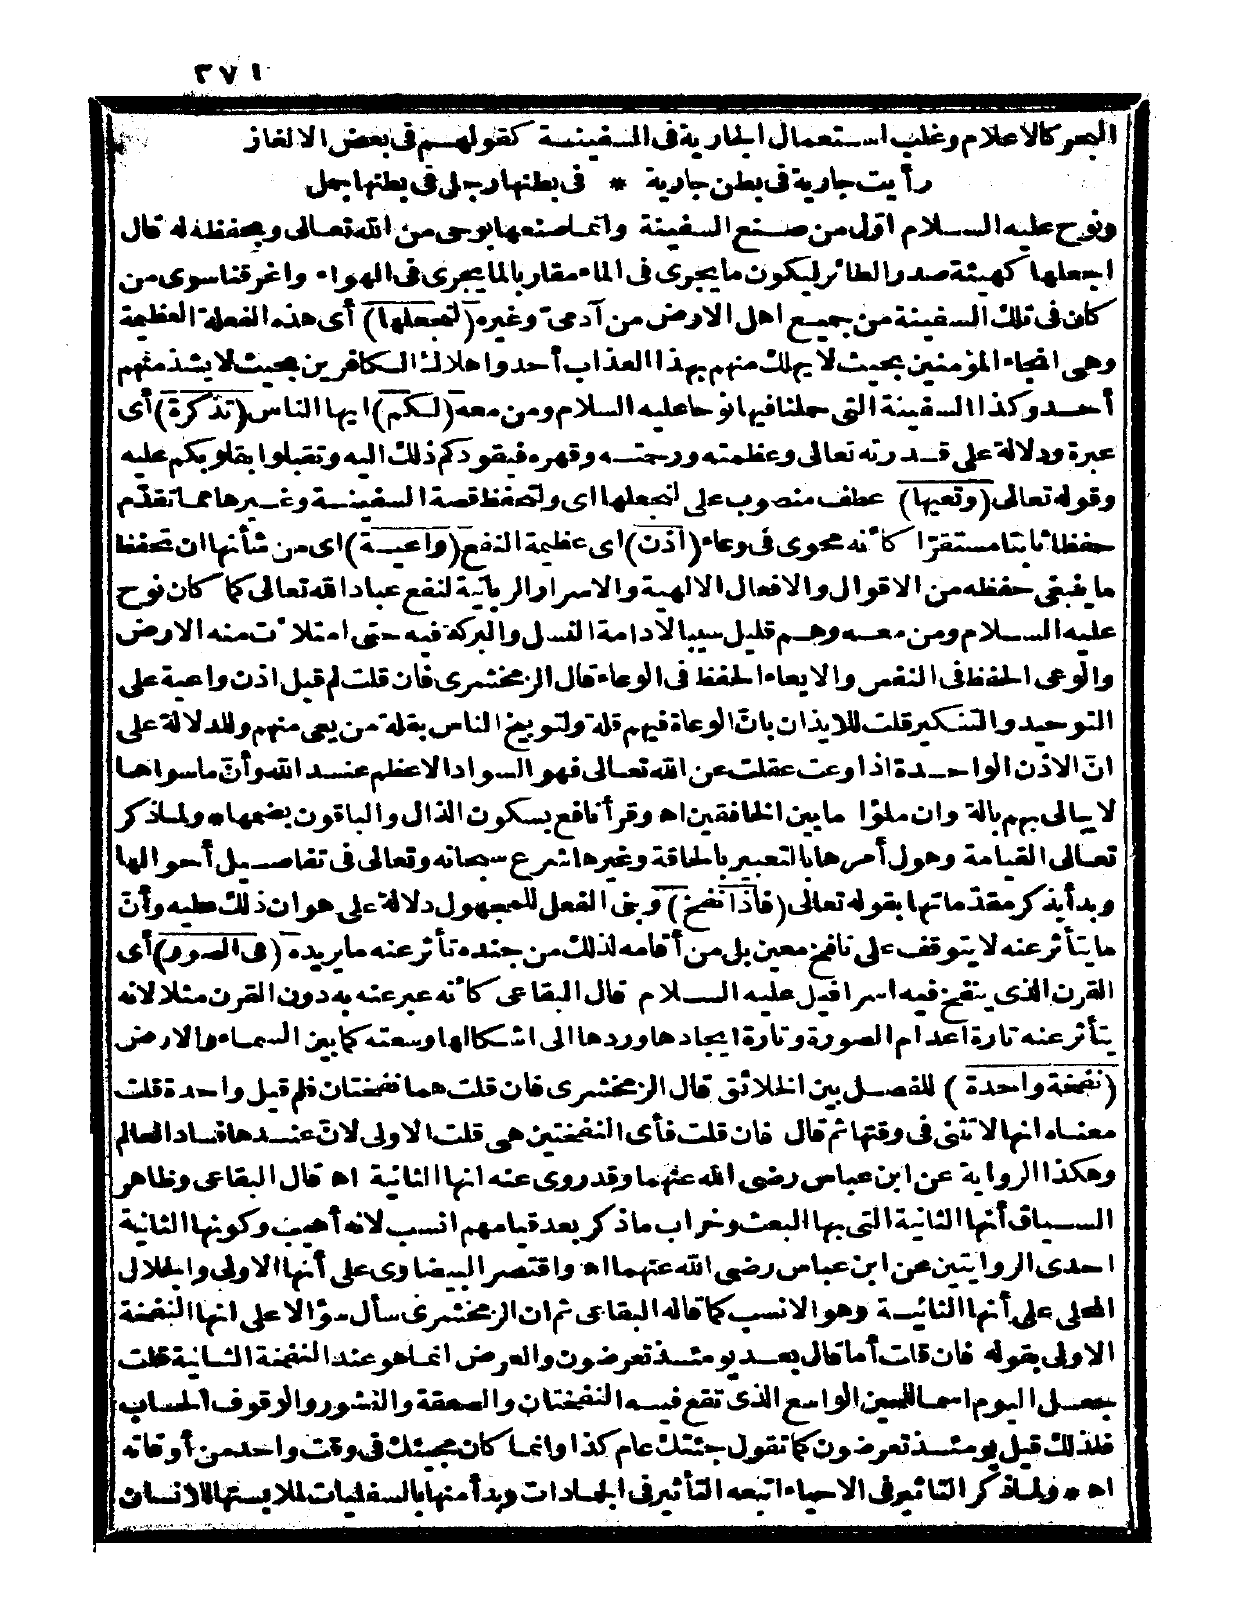 ٣٧١
البحر كالاعلام وغلب استعمال الجارية فى السفينة كقولهم فى بعض الالغاز
رأيت جارية فى بطن جارية * فى بطنها رجل فى بطنها جمل
ونوح عليه السلام أول من صنع السفينة وانما صنعها بوحى من الله تعالى وبحفظه له قال
اجعلها كهيئة صدر الطائر ليكون ما يجرى فى الماء مقاربا لما يجرى فى الهواء واغرقنا سوى من
كان فى تلك السفينة من جميع اهل الارض من آدمى وغيره (لنجعلها) أى هذه الفعلة العظيمة
وهى انجاء المؤمنين بحيث لا يهلك منهم بهذا العذاب أحد واهلاك الكافرين بحيث لا يشذ منهم
أحد وكذا السفينة التى حملنا فيها نوحا عليه السلام ومن معه (لكم) ايها الناس (تذكرة) أى
عبرة ودلالة على قدرته تعالى وعظمته ورحمته وقهره فيقودكم ذلك اليه وتقبلوا بقلوبكم عليه
وقوله تعالى (وتعيها) عطف منصوب على لنجعلها اى ولتحفظ قصة السفينة وغيرها مما تقدّم
حفظا ثابتا مستقرّا كأنه محوى فى وعاء (اذن) اى عظيمة النفع (واعية) اى من شأنها ان تحفظ
ما ينبغى حفظه من الاقوال والافعال الالهية والاسرار الربانية لنفع عباد الله تعالى كما كان نوح
عليه السلام ومن معه وهم قليل سببا لادامة النسل والبركة فيه حتى امتلأت منه الارض
والوعى الحفظ فى النفس والايعاء الحفظ فى الوعاء قال الزمخشرى فان قلت لم قيل اذن واعية على
التوحيد والتنكير قلت للايذان بانّ الوعاة فيهم قلة ولتوبيخ الناس بقلة من يعى منهم وللدلالة على
انّ الاذن الواحدة اذا وعت عقلت عن الله تعالى فهو السواد الاعظم عند الله وأنّ ما سواها
لا يبالى بهم بالة وان ملؤا ما بين الخافقين اه وقرأ نافع بسكون الذال والباقون بضمها * ولما ذكر
تعالى القيامة وهول أمرها بالتعبير بالحاقة وغيرها شرع سبحانه وتعالى فى تفاصيل أحوالها
وبدأ بذكر مقدّماتها بقوله تعالى (فاذا نفخ) وبنى الفعل للمجهول دلالة على هوان ذلك عليه وأنّ
ما يتأثر عنه لا يتوقف على نافخ معين بل من أقامه لذلك من جنده تأثر عنه ما يريده (فى الصور) أى
القرن الذى ينفخ فيه اسرافيل عليه السلام قال البقاعى كأنه عبر عنه به دون القرن مثلا لانه
يتأثر عنه تارة اعدام الصورة وتارة ايجادها وردها الى اشكالها وسعته كما بين السماء والارض
(نفخة واحدة) للفصل بين الخلائق قال الزمخشرى فان قلت هما نفختان فلم قيل واحدة قلت
معناه انها لا تثنى فى وقتها ثم قال فان قلت فأى النفختين هى قلت الاولى لانّ عندها فساد العالم
وهكذا الرواية عن ابن عباس رضى الله عنهما وقد روى عنه انها الثانية اه قال البقاعى وظاهر
السياق أنها الثانية التى بها البعث وخراب ما ذكر بعد قيامهم انسب لانه أهيب وكونها الثانية
احدى الروايتين عن ابن عباس رضى الله عنهما اه واقتصر البيضاوى على أنها الاولى والجلال
المحلى على أنها الثانية وهو الانسب كما قاله البقاعى ثم ان الزمخشرى سأل سؤالا على انها النفخة
الاولى بقوله فان قلت أما قال بعد يومئذ تعرضون والعرض انما هو عند النفخة الثانية قلت
جعل اليوم اسما للحين الواسع الذى تقع فيه النفختان والصعقة والنشور والوقوف الحساب
فلذلك قيل يومئذ تعرضون كما تقول جئتك عام كذا وانما كان مجيئك فى وقت واحد من أوقاته
اه * ولما ذكر التاثير فى الاحياء اتبعه التأثير فى الجمادات وبدأ منها بالسفليات لملابستها للانسان